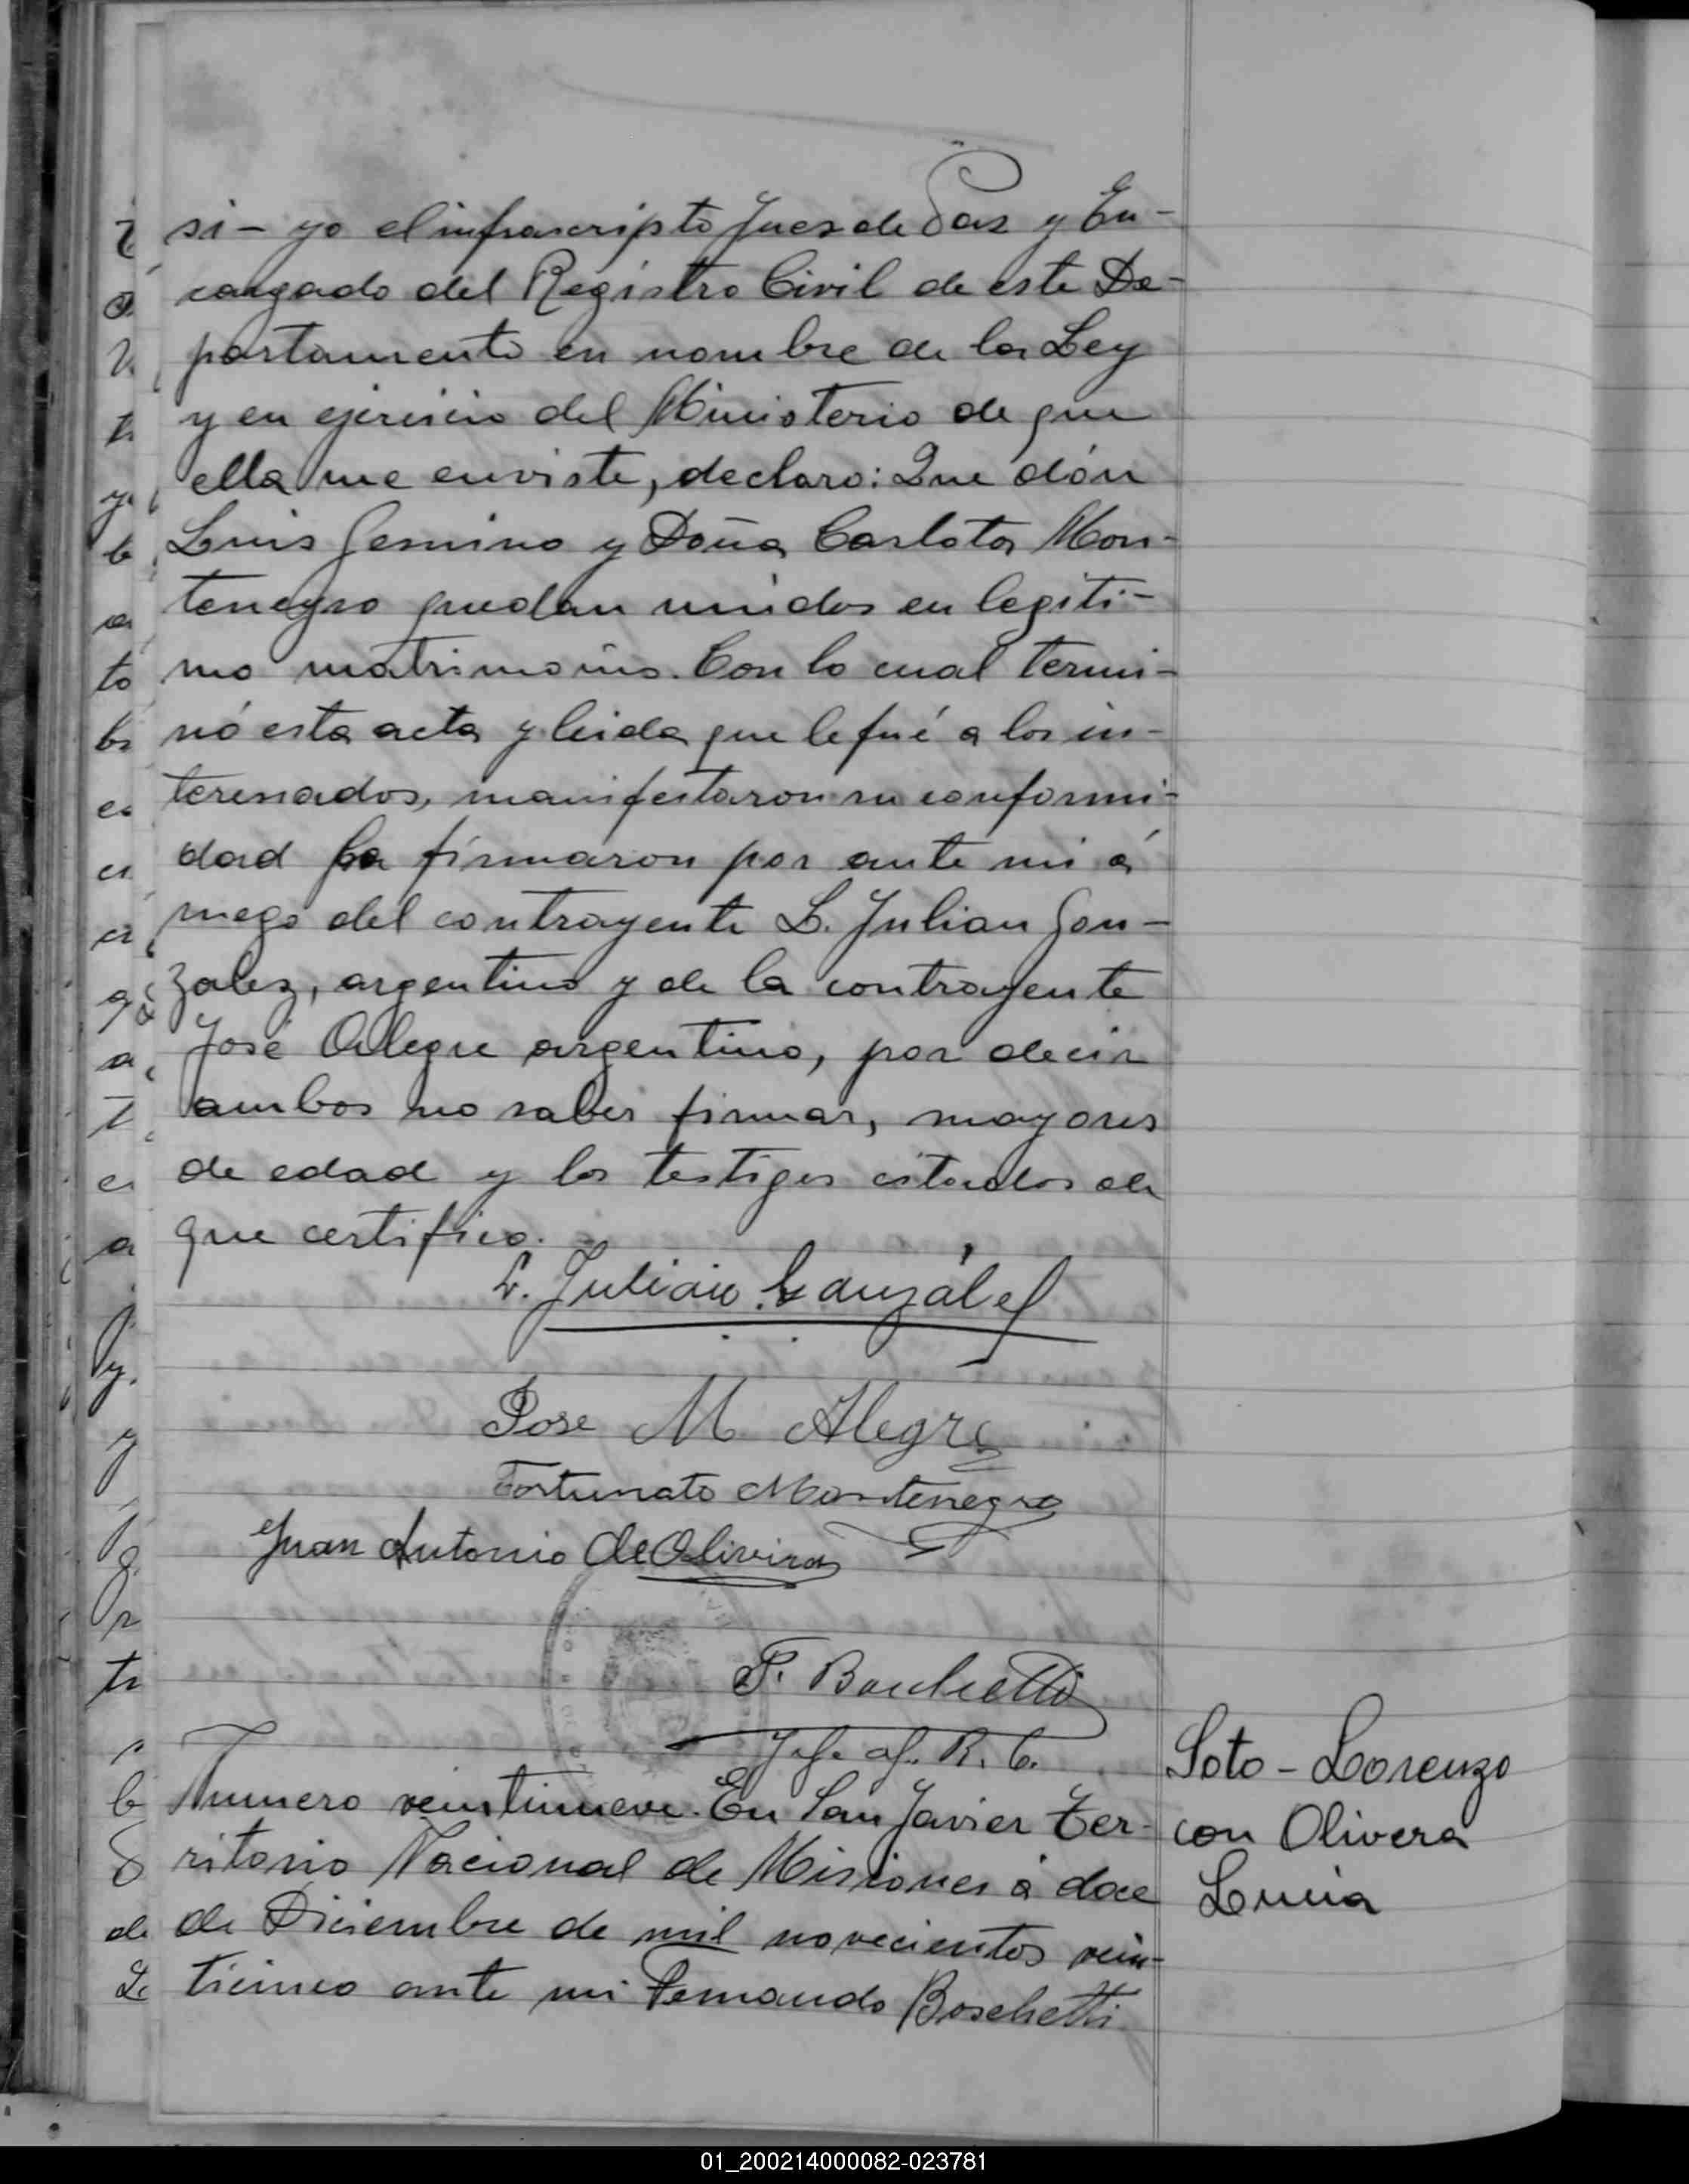 si - yo el infrascripto Juez de Paz y En-
cargado del Registro Civil de este De-
partamento en nombre de la Ley
y en ejersicio del Ministerio de que
ella me enviste, declaro: Que dón
Luis Gesnino y Doña Carlota Mon-
tenegro quedan unidos en legiti-
mo matrimonio. Con lo cual termi-
nó esta acta y leida que le fué a los in-
teresados, manifestaron su conformi-
dad la firmaron por ante mi á
ruego del contrayente L. Julian Gon-
zalez, argentino y de la contrayente
José Alegre argentino, por decir
ambos no saber firmar, mayores
de edad y los testigos citados de
que certifico.
L. Julián Gonzáles
Jose M Alegre
Fortunato Montenegro
Juan Antonio de Oliveira
F. Boschetti
Jefe R. C.
Numero veintinueve. En San Javier Ter-
ritorio Nacional de Misiones á doce
de Diciembre de mil novecientos vein-
ticinco ante mi Fernando Boschetti
Soto - Lorenzo
con Olivera
Lucia
01_200214000082-023781